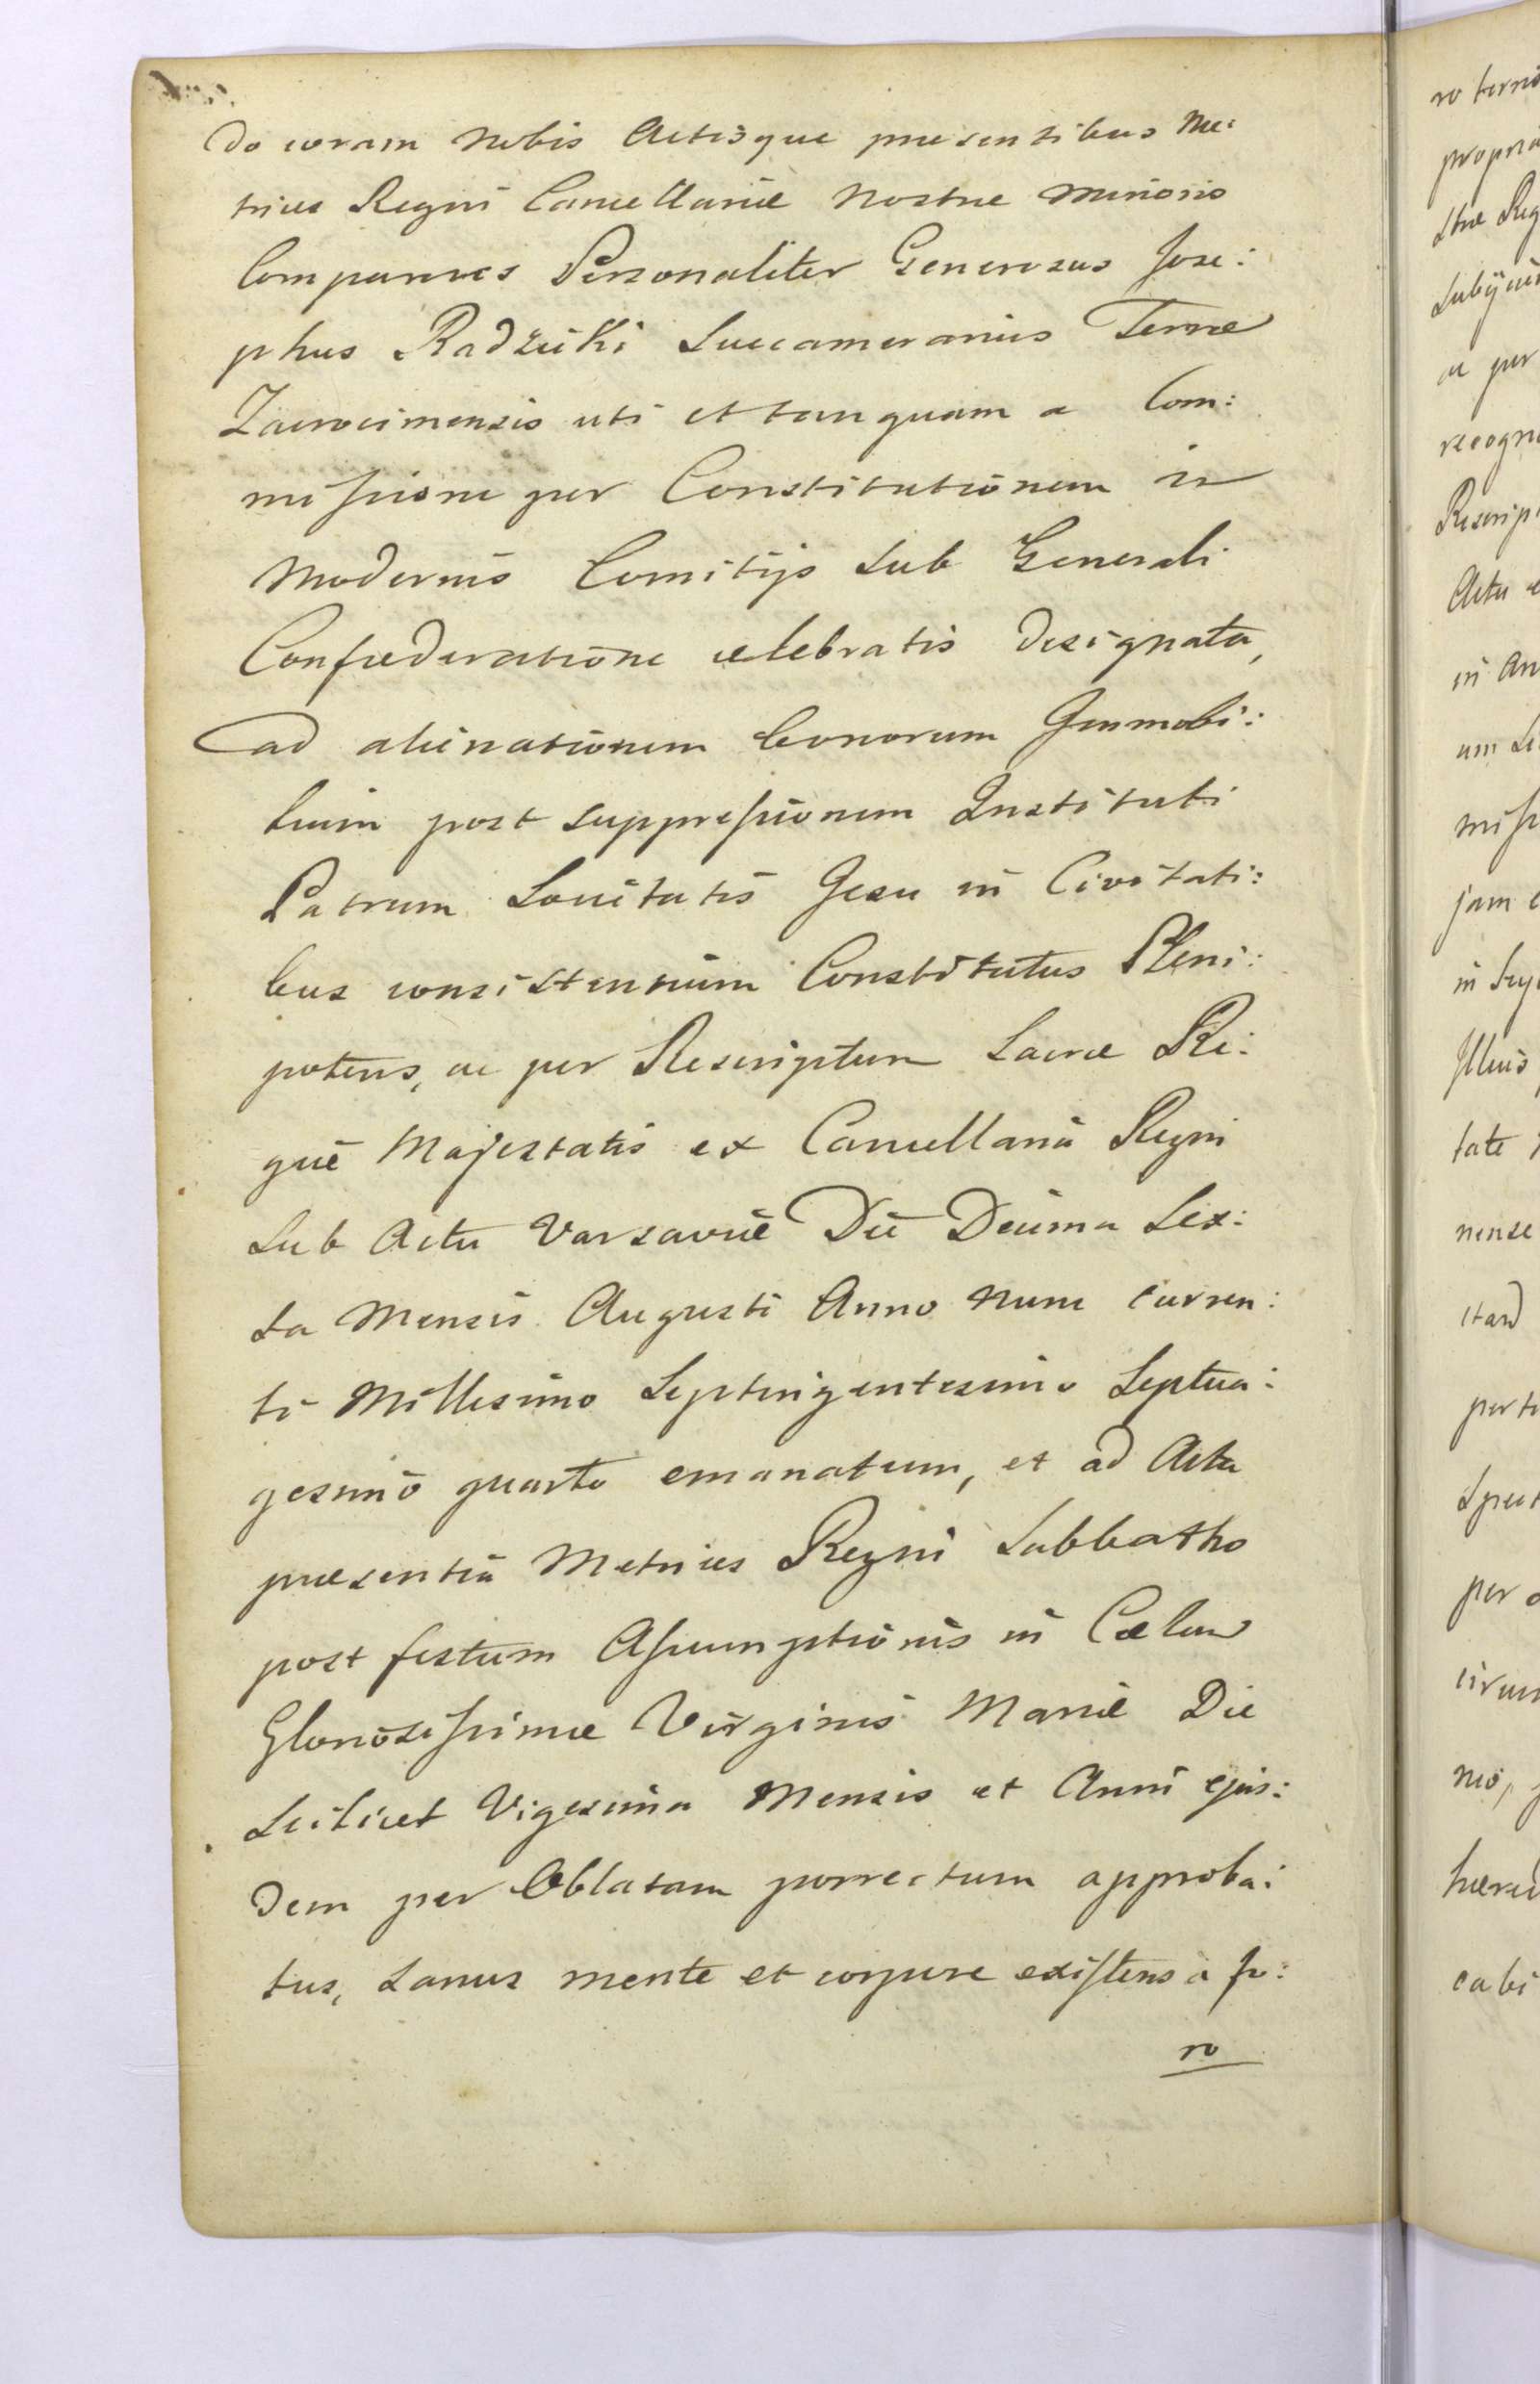 do coram Nobis Actisque præsentibus Me:
trices Regni Cancellariæ Nostræ Minoris
Comparens Personaliter Generosus Jose:
phus Radzicki Succamerarius Terræ
Zacrocimensis uti et tanquam a Com:
missione per Constitutionem in
Modernis Comitijs Sub Generali
Confæderatione celebratis designata,
ad alienationem bonorum Immobi:
lium post suppressionem Instituti
Patrum Societatis Jesu in Civitati:
bus consistentium Constitutus Pleni:
potens, ac per Rescriptum Sacræ Re:
giæ Majestatis ex Cancellaria Regni
Sub Actu Varsaviæ Die Decima Sex:
ta Mensis Augusti Anno nunc curren:
ti Millesimo Septingentesimo Septua:
gesimo quarto emanatum, et ad Acta
præsentia Metrices Regni Sabbatho
post festum Assumptionis in Cælum
Gloriosissimæ Virginis Mariæ Die
Scilicet Vigesima Mensis et Anni ejus:
dem per Oblatam porrectum approba:
tus, Sanus mente et corpore existens a fo:
ro